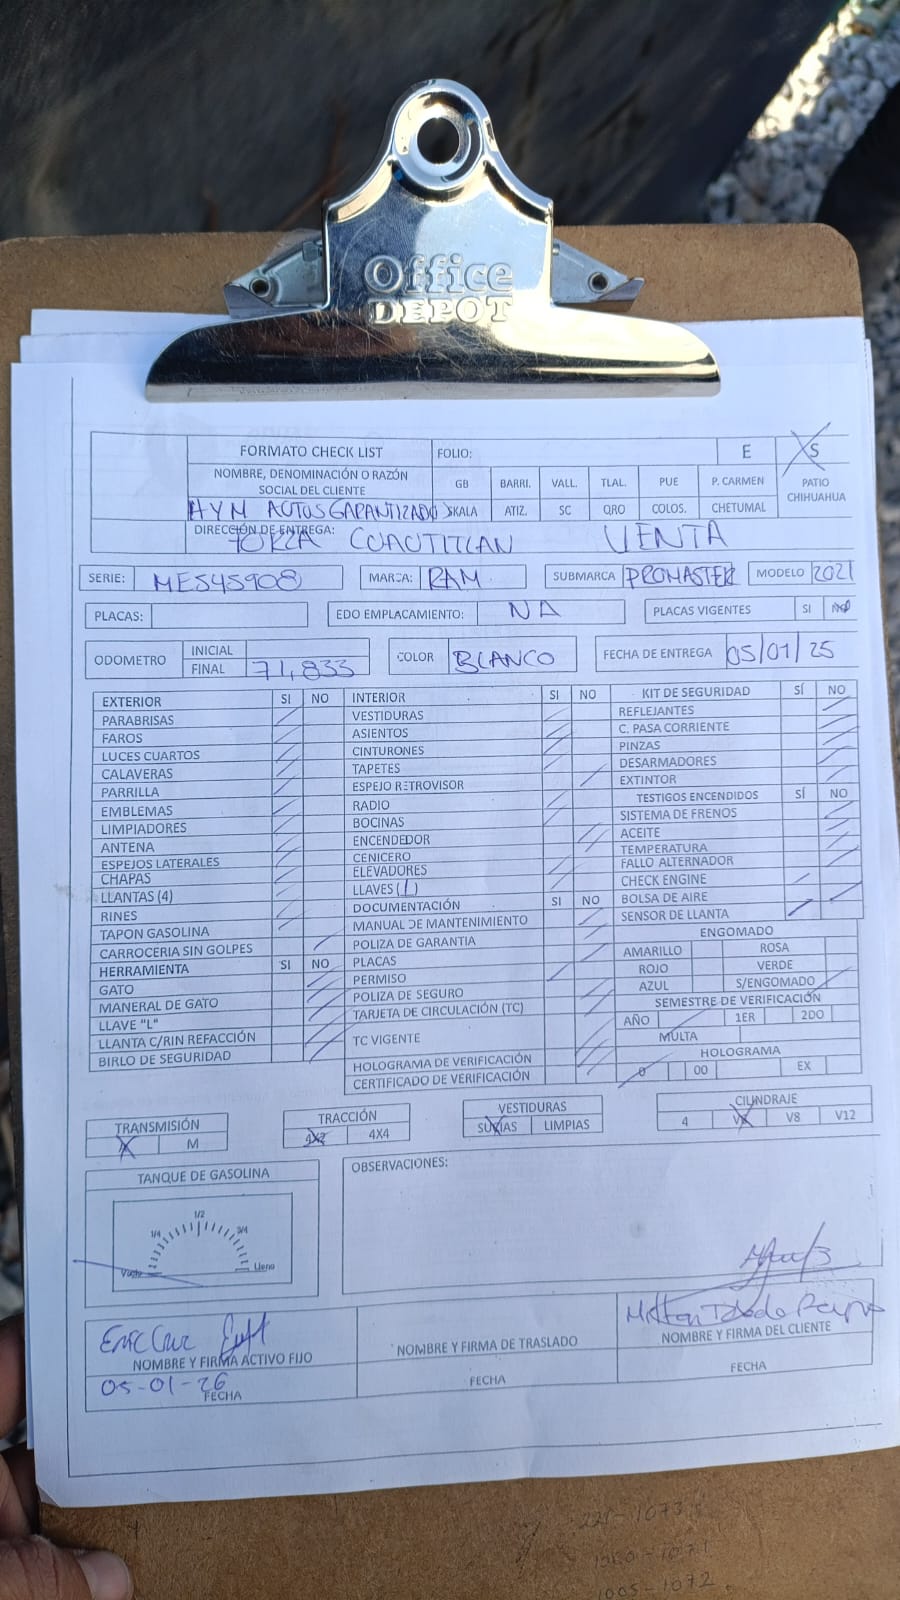 Office
DEPOT
FORMATO CHECK LIST FOLIO: E S
NOMBRE, DENOMINACIÓN O RAZÓN SOCIAL DEL CLIENTE GB BARRI. VALL. TLAL. PUE P. CARMEN PATIO CHIHUAHUA
AYM AUTOS GARANTIZADOS SKALA ATIZ. SC QRO COLOS. CHETUMAL
DIRECCIÓN DE ENTREGA: FORZA CUAUTITLAN VENTA
SERIE: ME545908 MARCA: RAM SUBMARCA PROMASTER MODELO 2021
PLACAS: EDO EMPLACAMIENTO: NA PLACAS VIGENTES SI NO
ODOMETRO INICIAL
FINAL 71,833 COLOR BLANCO FECHA DE ENTREGA 05/01/25
EXTERIOR SI NO
PARABRISAS
FAROS
LUCES CUARTOS
CALAVERAS
PARRILLA
EMBLEMAS
LIMPIADORES
ANTENA
ESPEJOS LATERALES
CHAPAS
LLANTAS (4)
RINES
TAPON GASOLINA
CARROCERIA SIN GOLPES
HERRAMIENTA SI NO
GATO
MANERAL DE GATO
LLAVE "L"
LLANTA C/RIN REFACCIÓN
BIRLO DE SEGURIDAD
INTERIOR SI NO
VESTIDURAS
ASIENTOS
CINTURONES
TAPETES
ESPEJO RETROVISOR
RADIO
BOCINAS
ENCENDEDOR
CENICERO
ELEVADORES
LLAVES (1)
DOCUMENTACIÓN SI NO
MANUAL DE MANTENIMIENTO
POLIZA DE GARANTIA
PLACAS
PERMISO
POLIZA DE SEGURO
TARJETA DE CIRCULACIÓN (TC)
TC VIGENTE
HOLOGRAMA DE VERIFICACIÓN
CERTIFICADO DE VERIFICACIÓN
KIT DE SEGURIDAD SÍ NO
REFLEJANTES
C. PASA CORRIENTE
PINZAS
DESARMADORES
EXTINTOR
TESTIGOS ENCENDIDOS SÍ NO
SISTEMA DE FRENOS
ACEITE
TEMPERATURA
FALLO ALTERNADOR
CHECK ENGINE
BOLSA DE AIRE
SENSOR DE LLANTA
ENGOMADO
AMARILLO ROSA
ROJO VERDE
AZUL S/ENGOMADO
SEMESTRE DE VERIFICACIÓN
AÑO 1ER 2DO
MULTA
HOLOGRAMA
0 00 EX
TRANSMISIÓN
A M
TRACCIÓN
4X2 4X4
VESTIDURAS
SUCIAS LIMPIAS
CILINDRAJE
4 V6 V8 V12
TANQUE DE GASOLINA
1/2
1/4 3/4
Vacío Lleno
OBSERVACIONES:
Eric Cruz
NOMBRE Y FIRMA ACTIVO FIJO
05-01-26
FECHA
NOMBRE Y FIRMA DE TRASLADO
FECHA
Milton Toledo
NOMBRE Y FIRMA DEL CLIENTE
FECHA
1005-1072